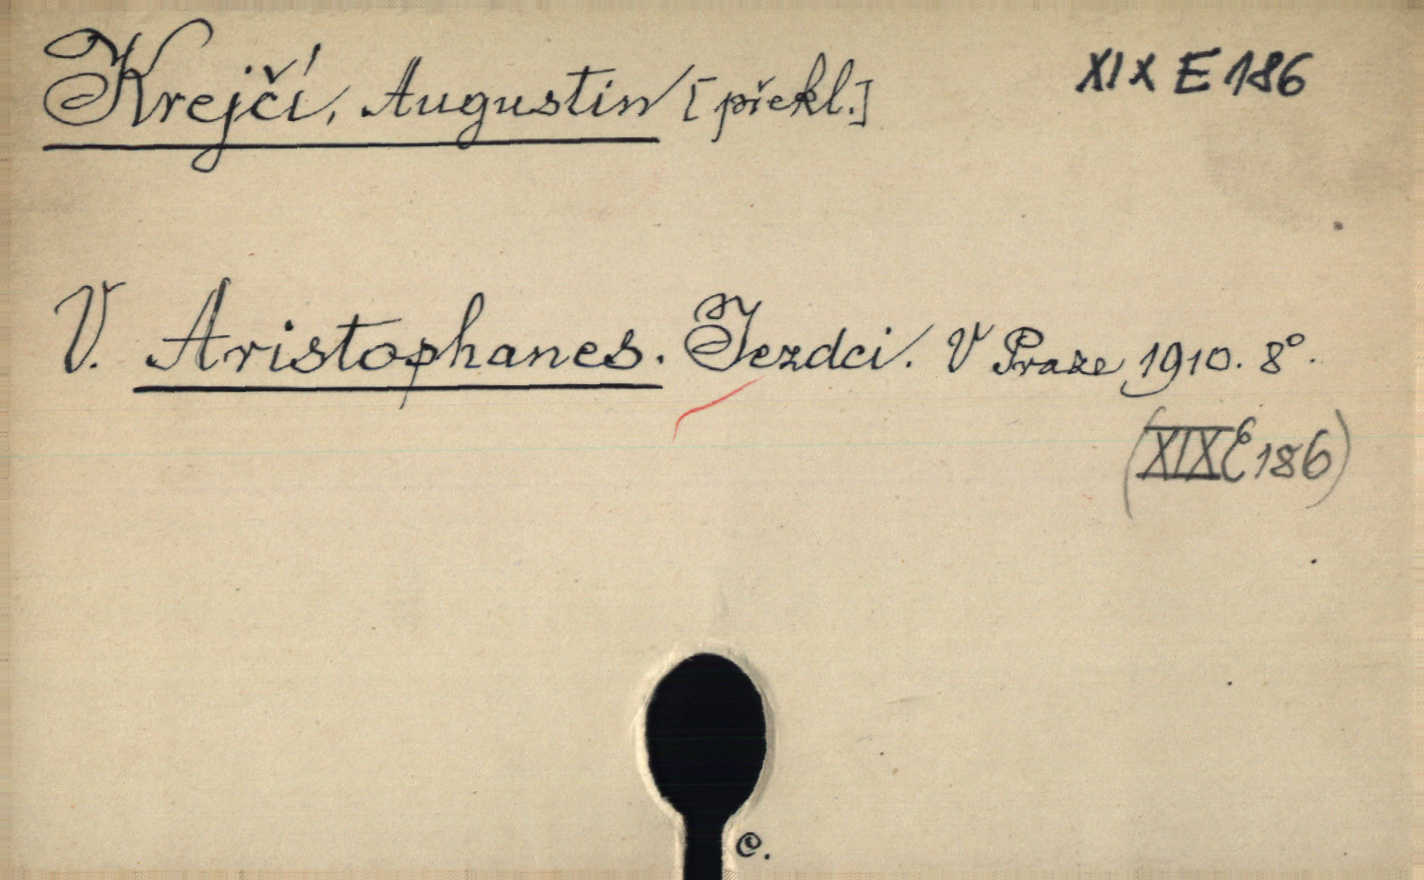 Krejčí, Augustin [překl.] XIX E 186
V. Aristophanes. Jezdci. V Praze 1910. 8°.
(XIX E 186)
C.